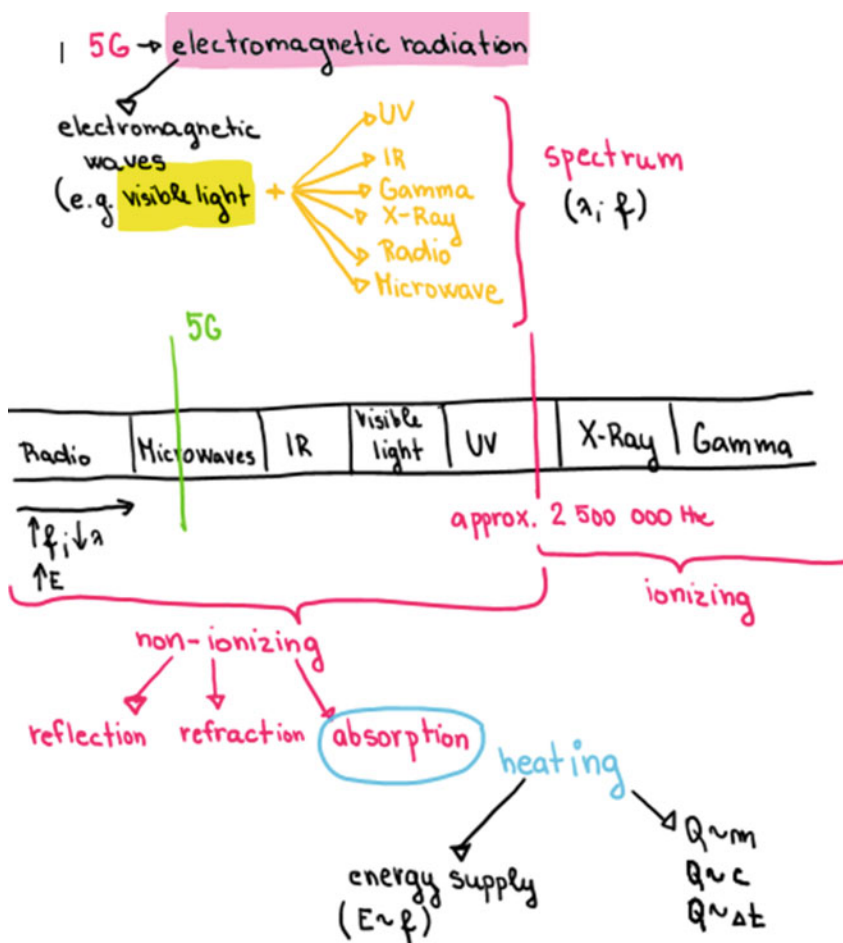 1 5G → electromagnetic radiation
electromagnetic
waves
(e.g. visible light +
UV
IR
Gamma
X-Ray
Radio
Microwave
spectrum
(λ; f)
5G
Radio | Microwaves | IR | Visible light | UV | X-Ray | Gamma
↑f; ↓λ
↑E
approx. 2 500 000 Hz
ionizing
non-ionizing
reflection refraction absorption
heating
energy supply
(E~f)
Q~m
Q~c
Q~Δt